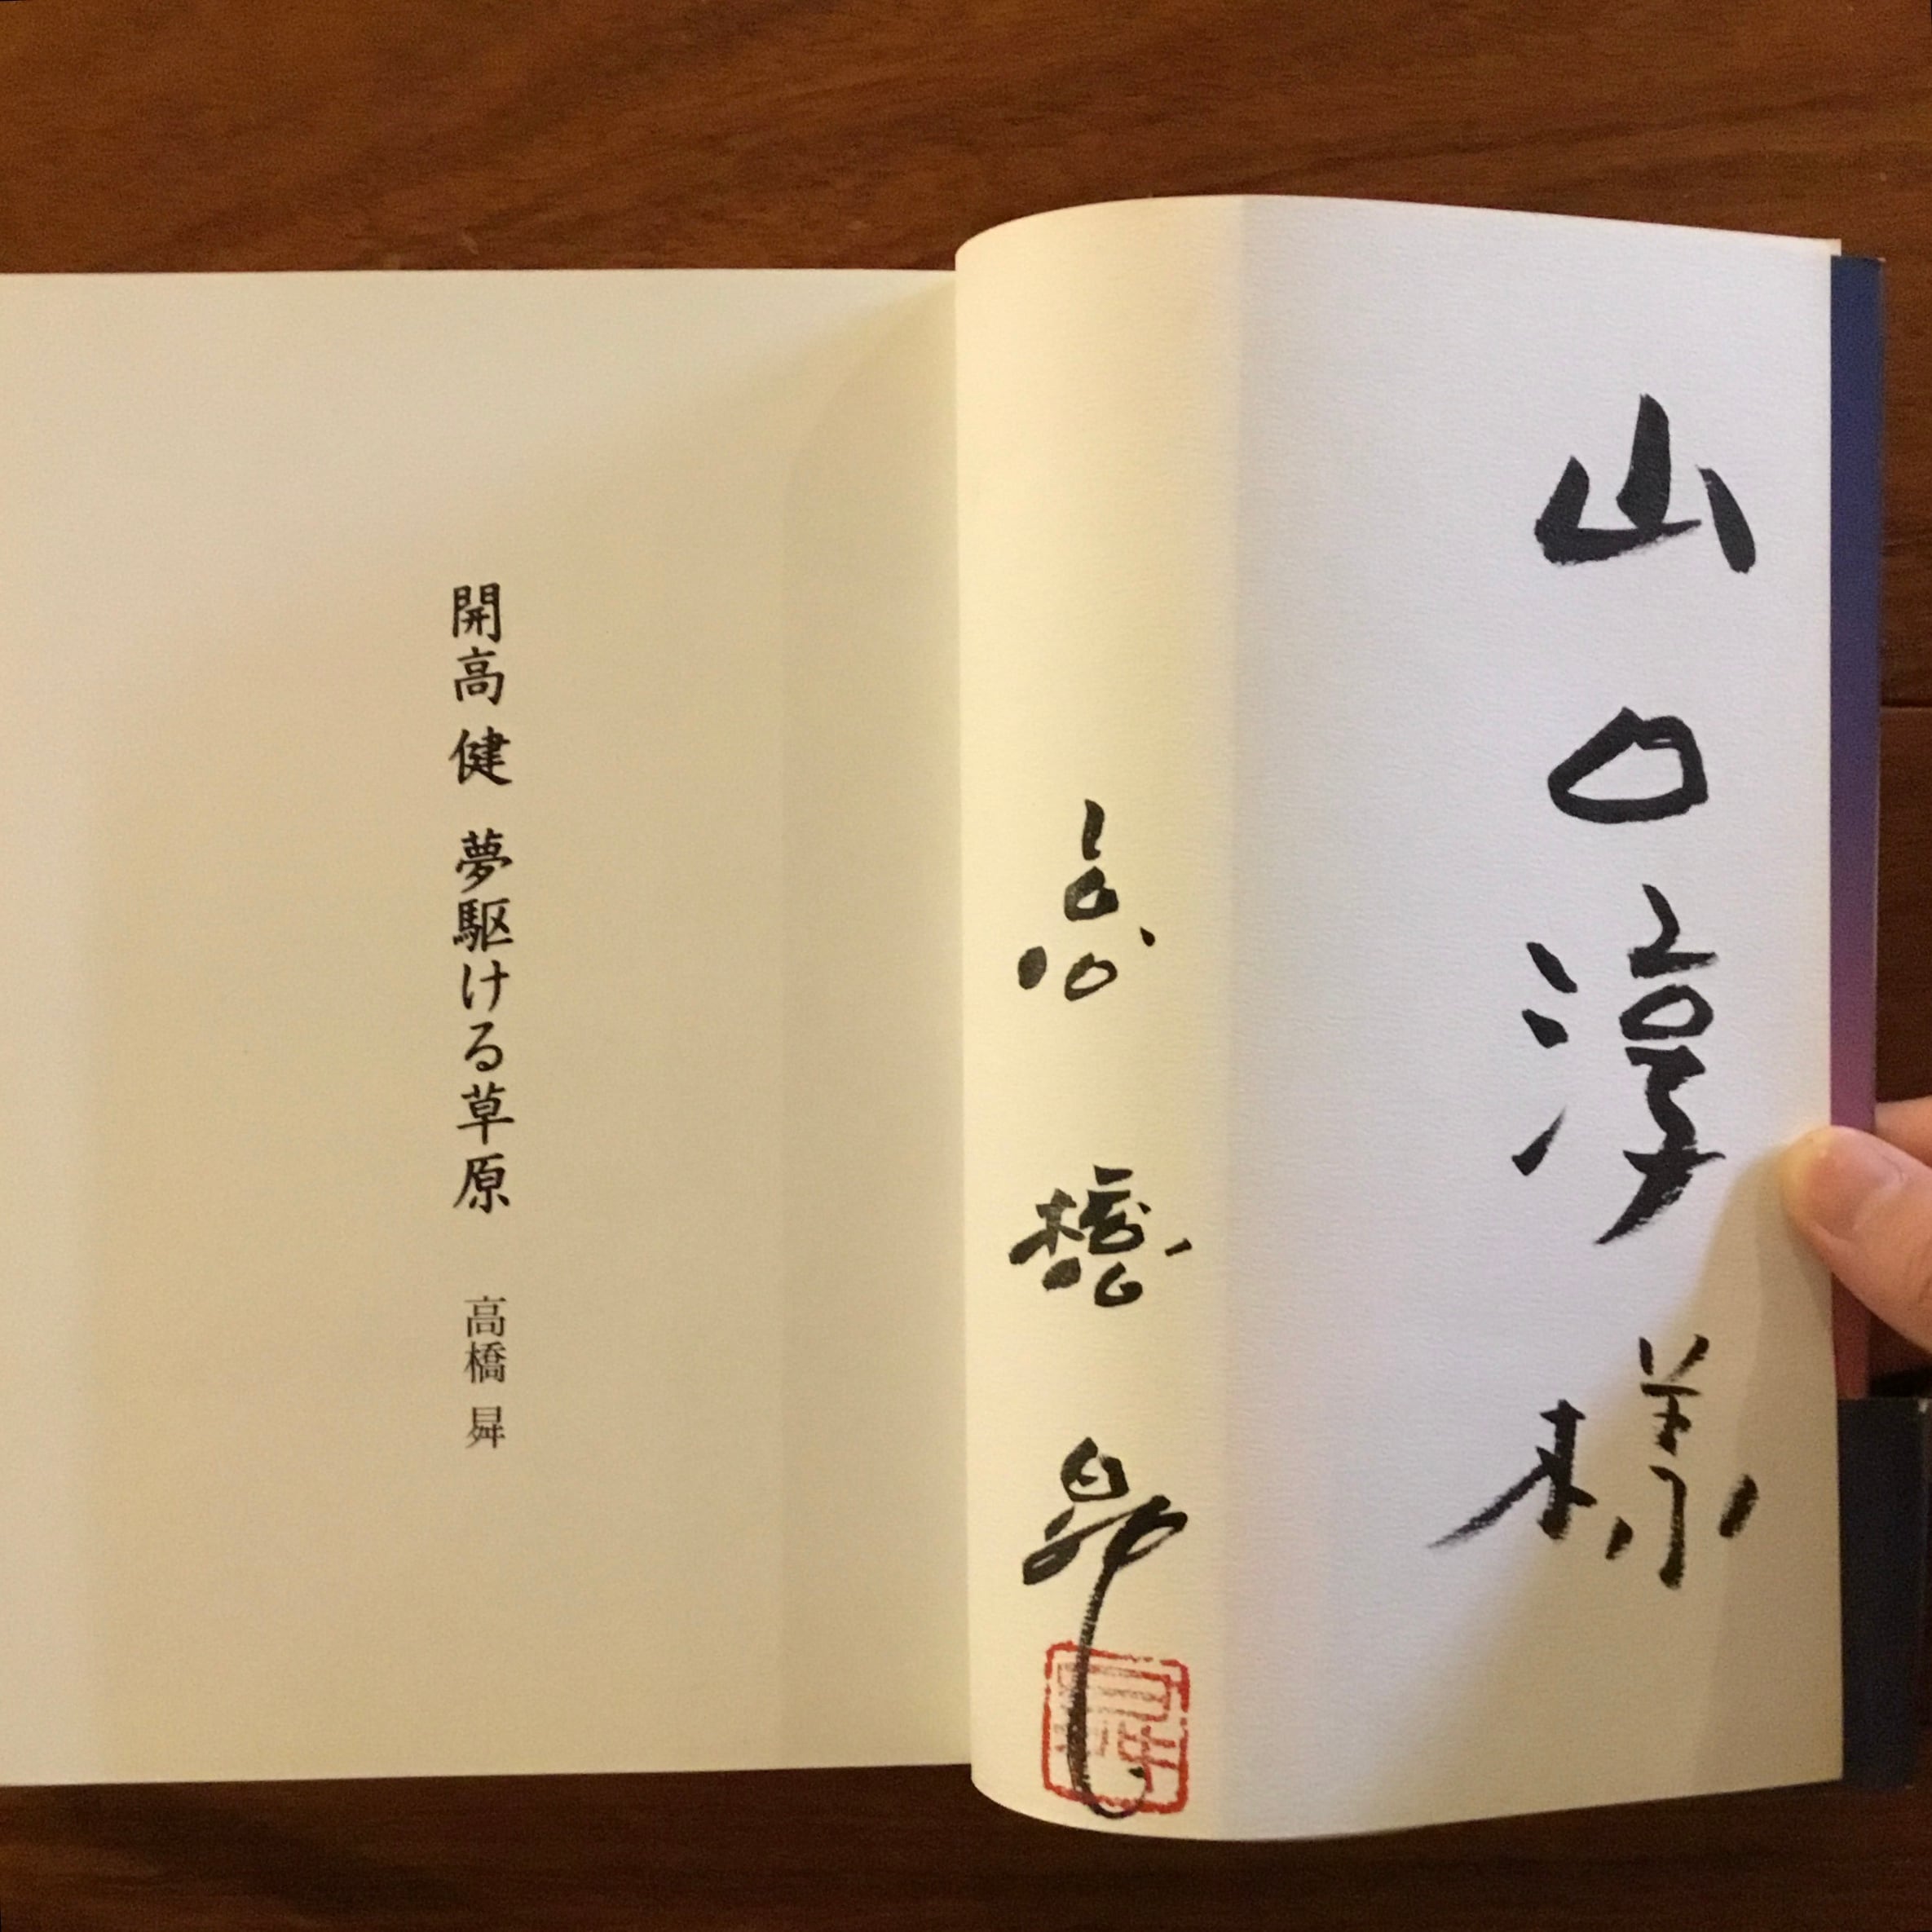 山口淳様
高橋曻
開高健 夢駆ける草原 高橋曻